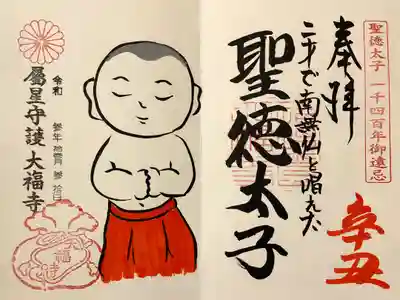 聖徳太子 一千四百年御遠忌
奉拝
二才で南無仏と唱えた
聖徳太子
辛丑
令和
参年
屬星守護 大福寺